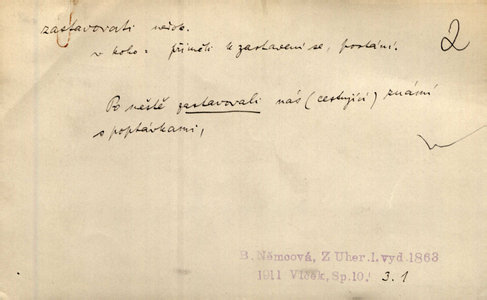 zastavovati někoho.
v koho = přiměti k zastavení se, postání.
2
Po městě zastavovali nás (cestující) známí
s poptávkami,
B. Němcová, Z Uher.1.vyd 1863
1911 Vlček, Sp.10. 3.1